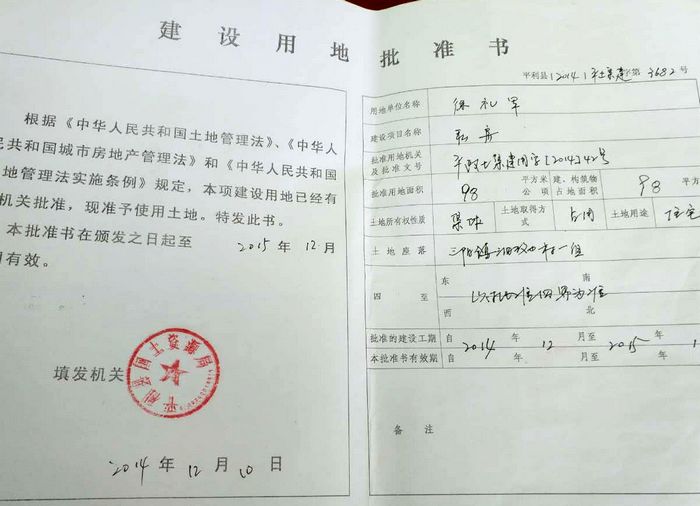 建设用地批准书
根据《中华人民共和国土地管理法》、《中华人
民共和国城市房地产管理法》和《中华人民共和国
地管理法实施条例》规定，本项建设用地已经有
机关批准，现准予使用土地。特发此书。
本批准书在颁发之日起至 2015 年 12 月
有效。
平利县国土资源局
填发机关
2014 年 12 月 10 日
平利县[2014]平土集建字第3682号
用地单位名称 徐礼军
建设项目名称 建房
批准用地机关
及批准文号 平政土集建用字[2014]42号
批准用地面积 98 平方米 公项 建、构筑物 占地面积 98 平方
土地所有权性质 集体 土地取得方式 占用 土地用途 住宅
土地座落 三阳镇 村一组
四至 东 南
西 北
以 为准
批准的建设工期 自 2014 年 12 月至 2015 年 1
本批准书有效期 自 年 月至 年
备注